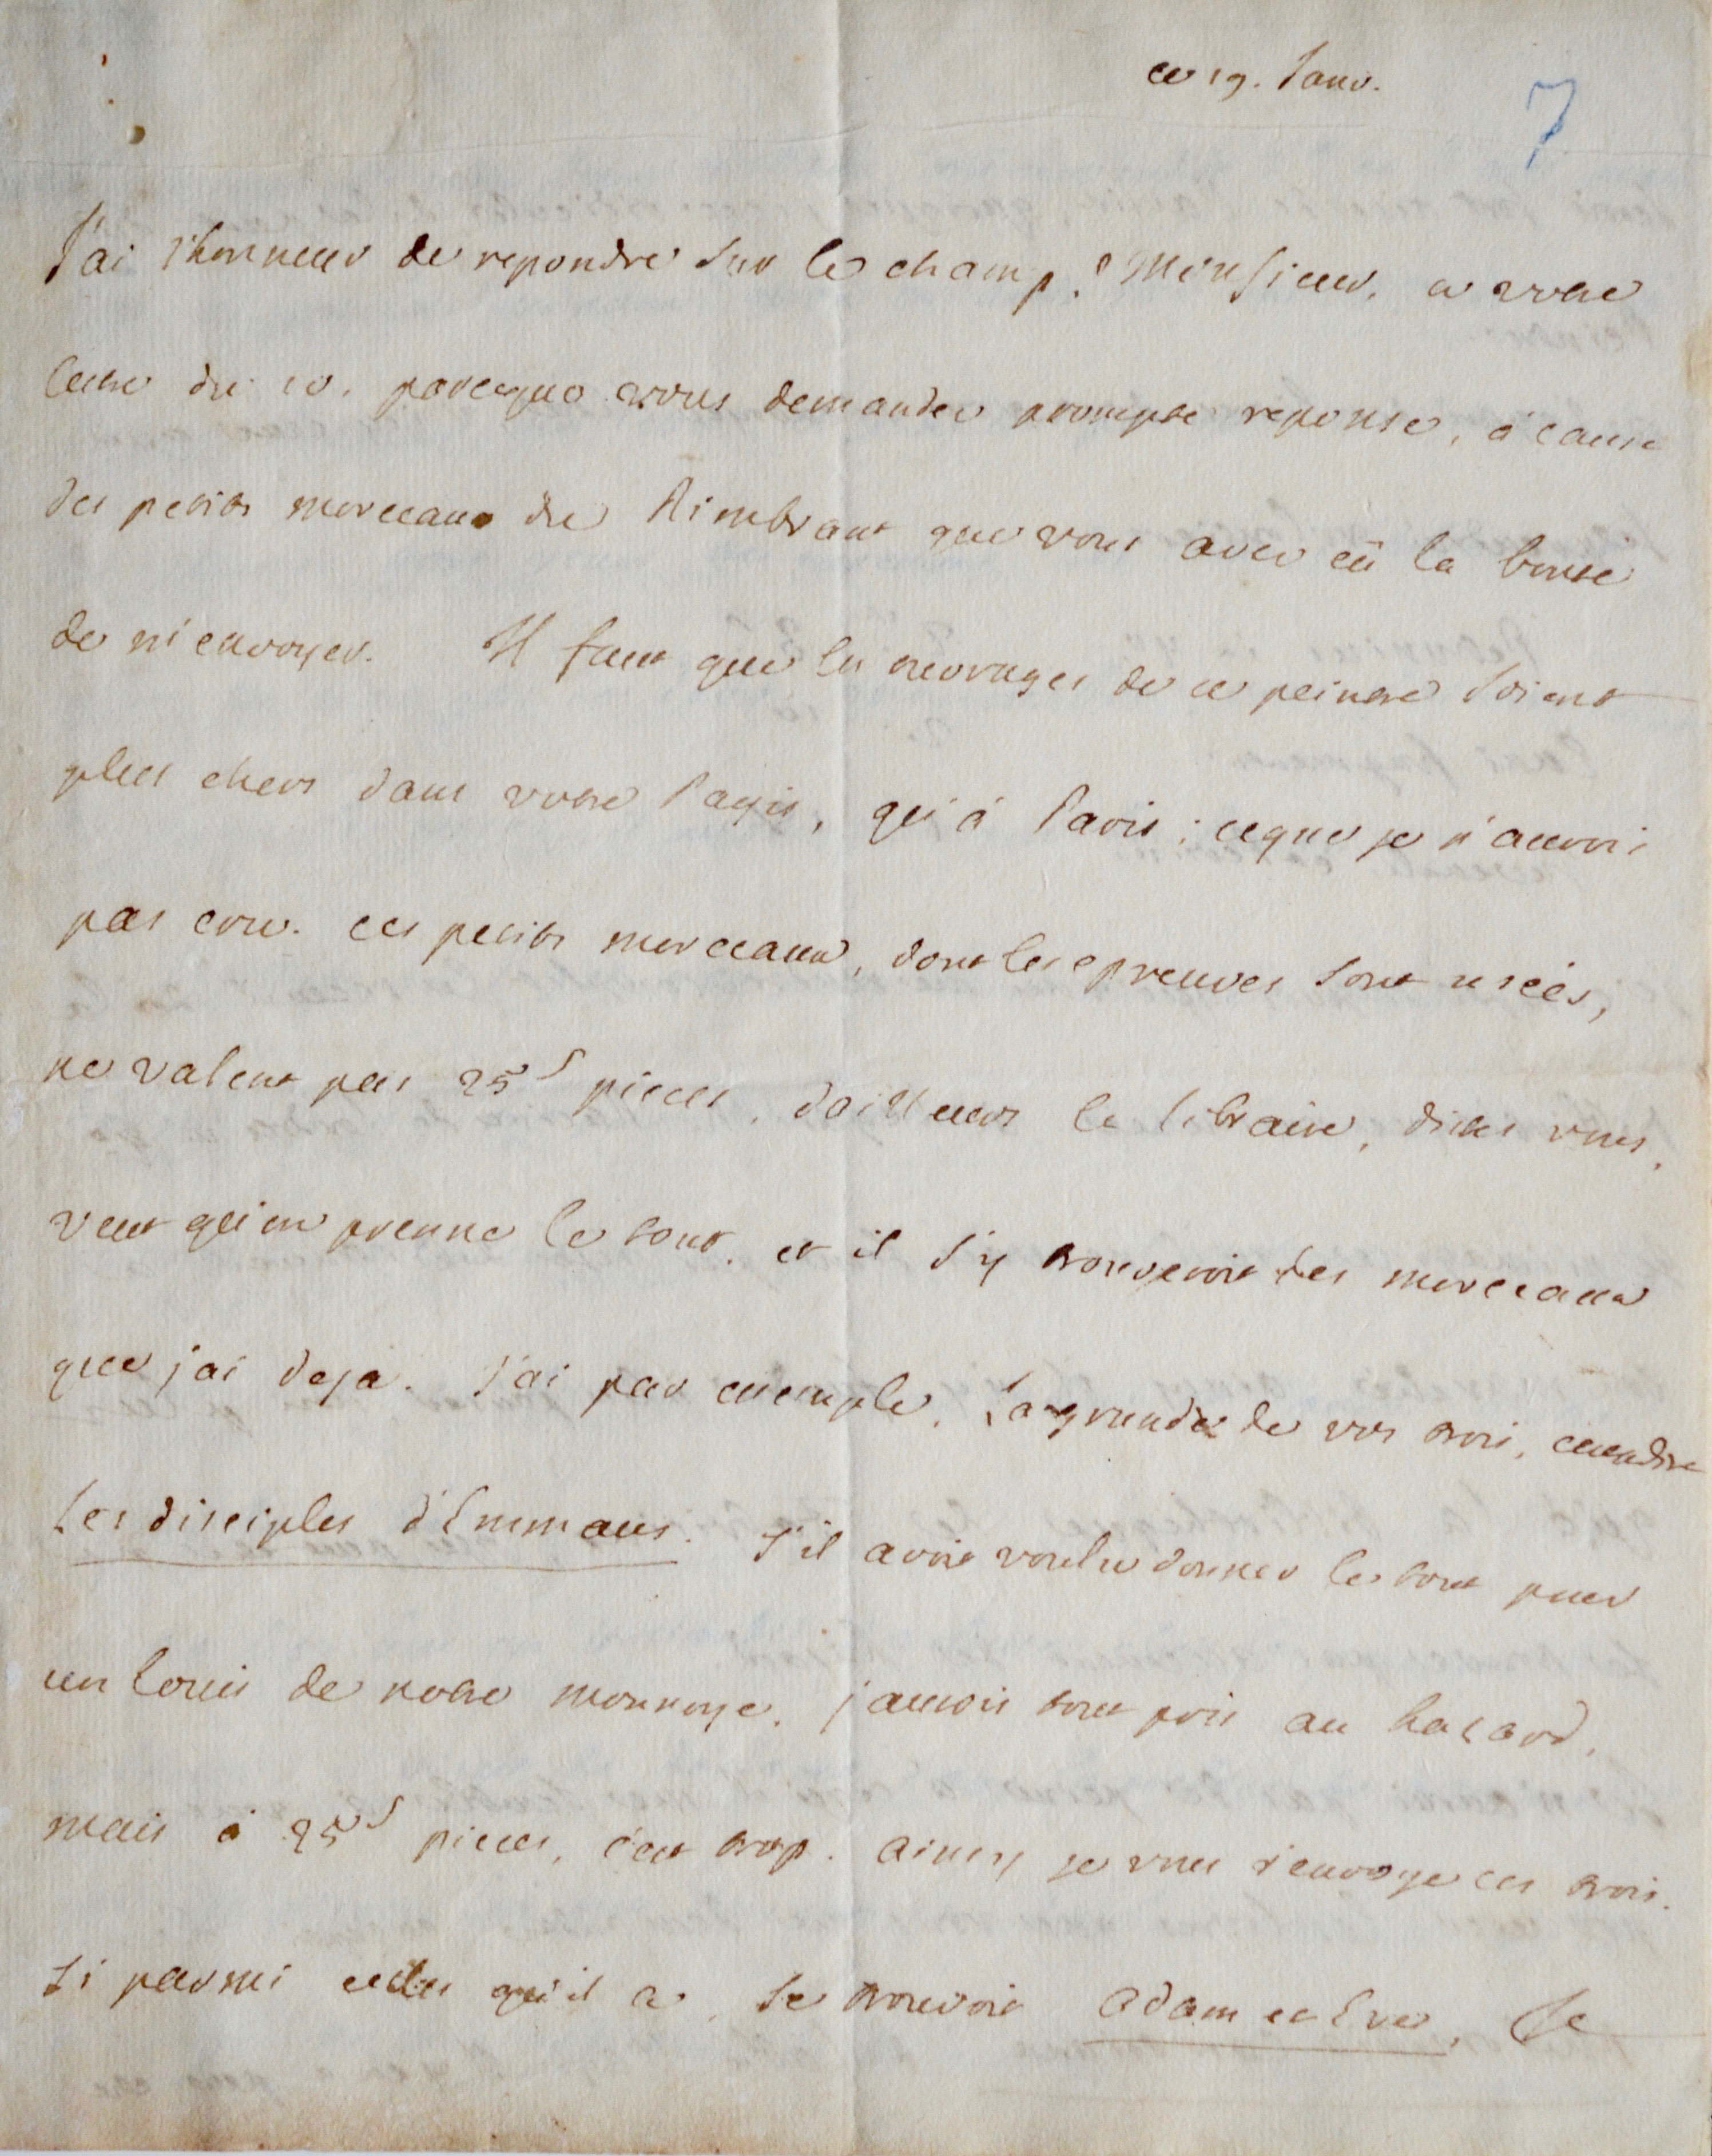 ce 19. Janv.
7
J'ai l'honneur de repondre sur le champ, Monsieur, a votre
lettre du 10. parceque vous demandez prompte reponse, à cause
des petits morceaux de Rimbrant que vous avez eü la bonté
de m'envoyer. Il faut que les ouvrages de ce peintre soient
plus chers dans votre Pays, qu'à Paris; ceque je n'aurois
pas cru. ces petits morceaux, dont les epreuves sont usées,
ne valent pas 25 s pieces. d'ailleurs le libraire, dites vous,
veut qu'on prenne le tout. et il s'y trouveroit des morceaux
que j'ai deja. J'ai par exemple, la grande de vos trois,
Les disciples d'Emmaus. S'il avoit voulu donner le tout pour
un louis de notre monnoye. j'aurois tout pris au hasard.
mais à 25 s pieces, c'est trop. ainsy je vous renvoye ces trois.
si parmi celles qu'il a, se trouvoit Adam et Eve, Le